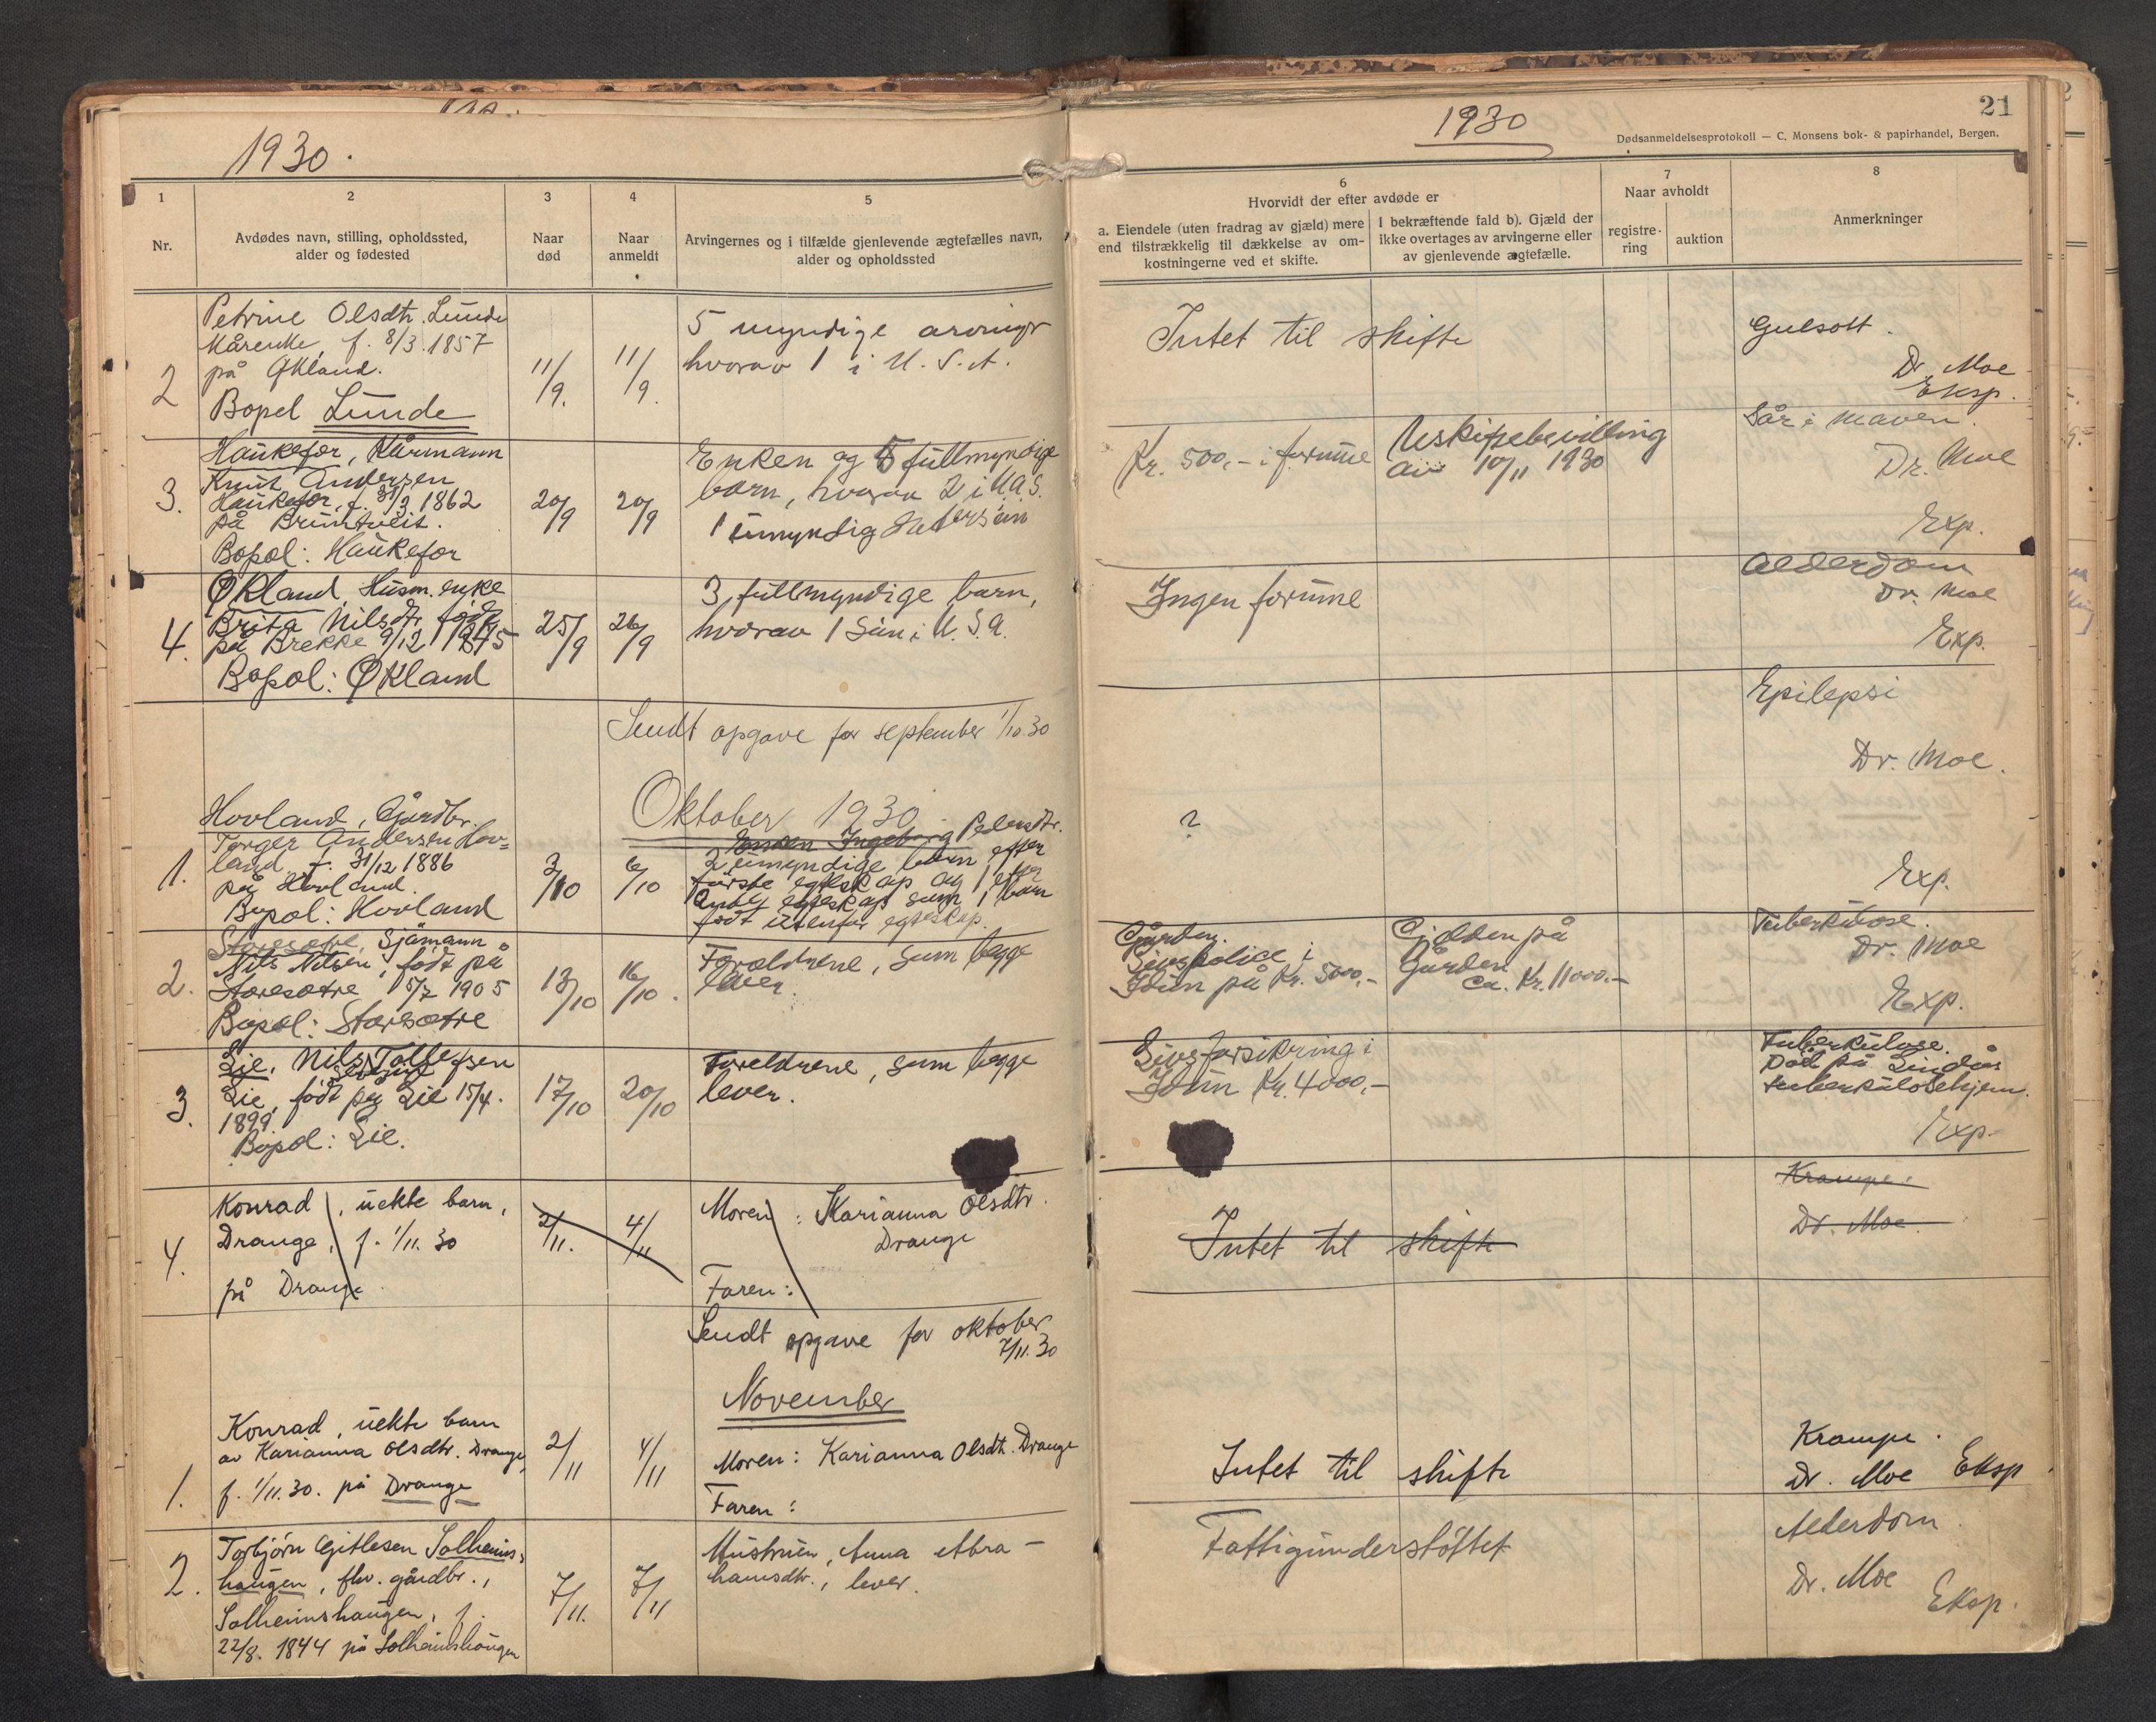 1930.
1
2
3
4
5
Nr.
Avdødes navn, stilling, opholdssted,
alder og fødested
Naar
død
Naar
anmeldt
Arvingernes og i tilfælde gjenlevende ægtefælles navn,
alder og opholdssted
2
Petrine Olsdtr. Lunde
Kårenke, f. 8/3 1857
på Økland.
Bopel Lunde
11/9.
11/9.
5 myndige arvinger
hvorav 1 i U.S.A.
3.
Haukefær, Kårmann
Knut Andersen
Haukefær, f. 31/3 1862
på Brundtveit.
Bopæl: Haukefær
20/9
20/9
Enken og 5 fullmyndige
barn, hvorav 2 i U.S.A.
1 umyndig
4.
Økland, Husm. enke
Brita Nilsdtr. født
på Brekke 9/12 1845
Bopæl: Økland
25/9
26/9
3 fullmyndige barn,
hvorav 1 søn i U.S.A.
Sendt opgave for september 1/10 30
Oktober 1930.
1.
Hovland, Gårdbr.
Torger Andersen Hov=
land f. 31/12 1886
på Hovland.
Bopæl: Hovland
3/10
6/10
Enken Ingeborg Pedersdtr.
2 umyndige barn efter
første egteskap og 1 efter
andet egteskap samt 1 barn
født utenfor egteskap.
2.
Storesætre, Sjömann
Nils Nilsen, født på
Storesætre 15/7 1905
Bopæl: Storesætre
13/10
16/10.
Foreldrene, som begge
lever.
3.
Lie, Nils Tollefsen
Lie, født på Lie 15/4.
1899.
Bopæl: Lie.
17/10
20/10
Foreldrene, som begge
lever.
4.
Konrad, uekte barn,
Drange, f. 1/11. 30
på Drange.
2/11.
4/11
Moren: Karianna Olsdtr.
Drange
Faren:
Sendt opgave for oktober
7/11. 30
November
1.
Konrad, uekte barn
av Karianna Olsdtr. Drange,
f. 1/11. 30. på Drange
2/11
4/11
Moren: Karianna Olsdtr. Drange
Faren:
2.
Torbjörn Gitlesen Solheims-
haugen, fhv. gårdbr.,
Solheimshaugen, f.
22/8. 1844 på Solheimshaugen
7/11.
7/11
Hustruen, Anna Abra-
hamsdtr., lever.
1930
21
Dødsanmeldelsesprotokoll — C. Monsens bok- & papirhandel, Bergen.
6
7
8
Hvorvidt der efter avdøde er
Naar avholdt
a. Eiendele (uten fradrag av gjæld) mere
end tilstrækkelig til dækkelse av om-
kostningerne ved et skifte.
I bekræftende fald b). Gjæld der
ikke overtages av arvingerne eller
av gjenlevende ægtefælle.
registre-
ring
auktion
Anmerkninger
Intet til skifte
Gulsott.
Dr. Moe
Eksp.
Kr. 500,- i formue
Uskiftebevilling
av 10/11 1930
Sår i maven.
Dr. Moe
Exp.
Ingen formue
Alderdom
Dr. Moe
Exp.
Epilepsi
Dr. Moe.
?
Exp.
Gården.
Livspolice i
Idun på Kr. 5000,-
Gjelden på
Gården
ca. Kr. 11000.-
Tuberkulose.
Dr. Moe
Exp.
Livsforsikring i
Idun Kr. 4000,-
Tuberkulose.
Død på Lindås
tuberkulosehjem.
Exp.
Intet til skifte
Krampe.
Dr. Moe
Intet til skifte
Krampe.
Dr. Moe Eksp.
Fattigunderstöttet
Alderdom.
Dr. Moe
Eksp.